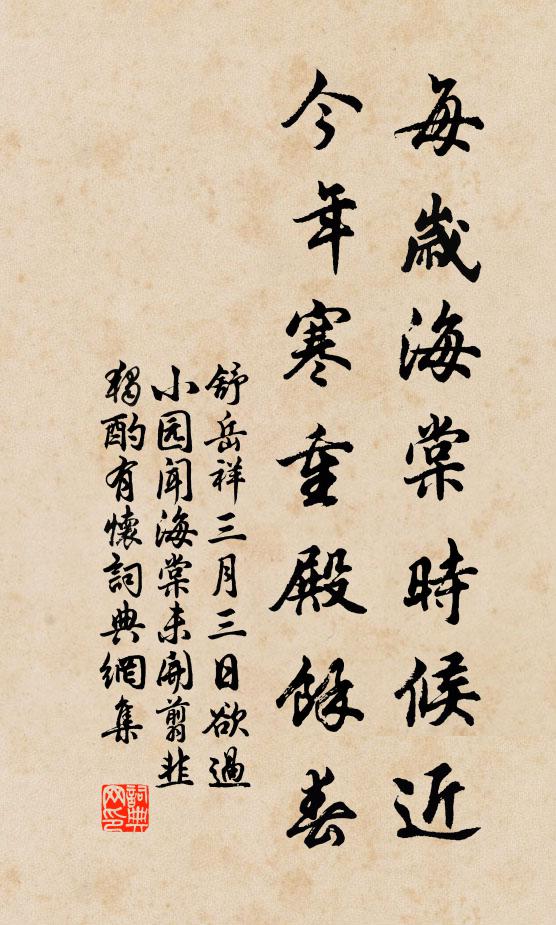 每歲海棠時候近
今年寒重殿餘春
舒岳祥三月三日欲過
小园闻海棠未開剪韭
獨酌有懷詞典網集
詞典
网印